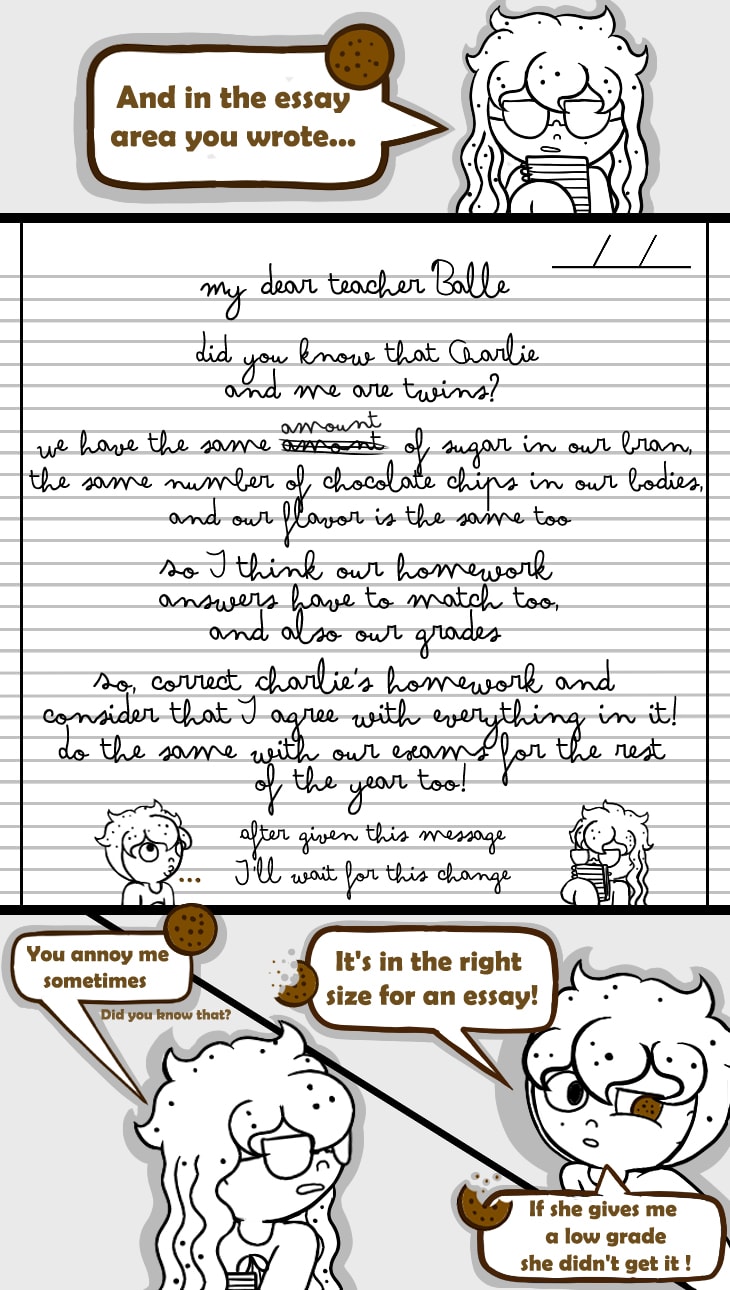 And in the essay
area you wrote...
/ /
my dear teacher Balle
did you know that Charlie
and me are twins?
amount
we have the same amont of sugar in our bran,
the same number of chocolate chips in our bodies,
and our flavor is the same too
so I think our homework
answers have to match too,
and also our grades
so, correct charlie's homework and
consider that I agree with everything in it!
do the same with our exams for the rest
of the year too!
after given this message
I'll wait for this change
...
You annoy me
sometimes
Did you know that?
It's in the right
size for an essay!
If she gives me
a low grade
she didn't get it !